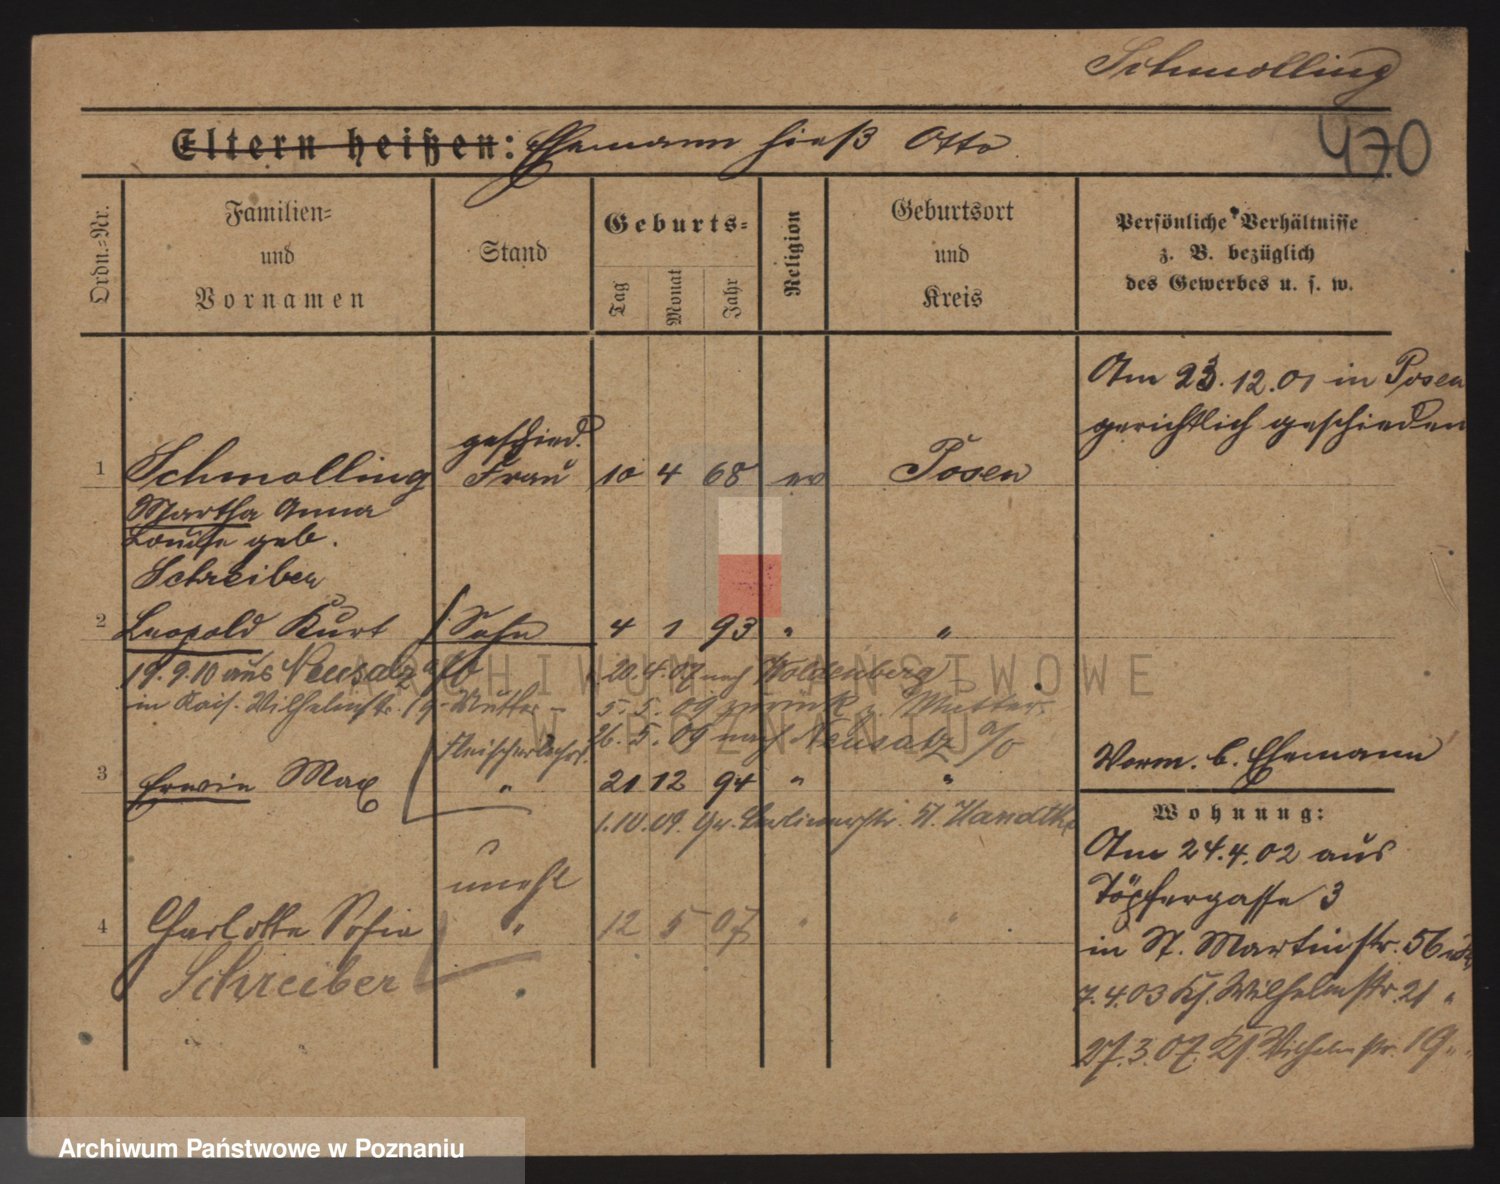 Schmolling
470
Eltern heißen: Ehemann hieß Otto
Ordn.=Nr.
Familien=
und
Vornamen
Stand
Geburts=
Tag
Monat
Jahr
Religion
Geburtsort
und
Kreis
Persönliche Verhältnisse
z. B. bezüglich
des Gewerbes u. s. w.
Am 23.12.01 in Posen
gerichtlich geschieden
geschied.
1 Schmolling Frau 10 4 68 ev Posen
Martha Anna
Louise geb.
Schreiber
2 Leopold Kurt Sohn 4 1 93 " "
19.9.10 aus Neusalz a/O 20.4.07 nach Woldenberg
in Kais. Wilhelmstr. 19 - Mutter - 5.5.09 zurück z. Mutter.
Fleischerlehrl. 26.5.09 nach Neusalz a/O
3 Erwin Max " 21 12 94 " "
1.10.09. Gr. Berlinerstr. 51. Handtke
Vorm. b. Ehemann
Wohnung:
Am 24.4.02 aus
Töpfergasse 3
in St. Martinstr. 56
7.4.03 Ks. Wilhelmstr. 21 "
27.3.07. Ks. Wilhelmstr. 19 "
unehl
4 Charlotte Sofia " 12 5 07 " "
Schreiber
ARCHIWUM PAŃSTWOWE
W POZNANIU
Archiwum Państwowe w Poznaniu